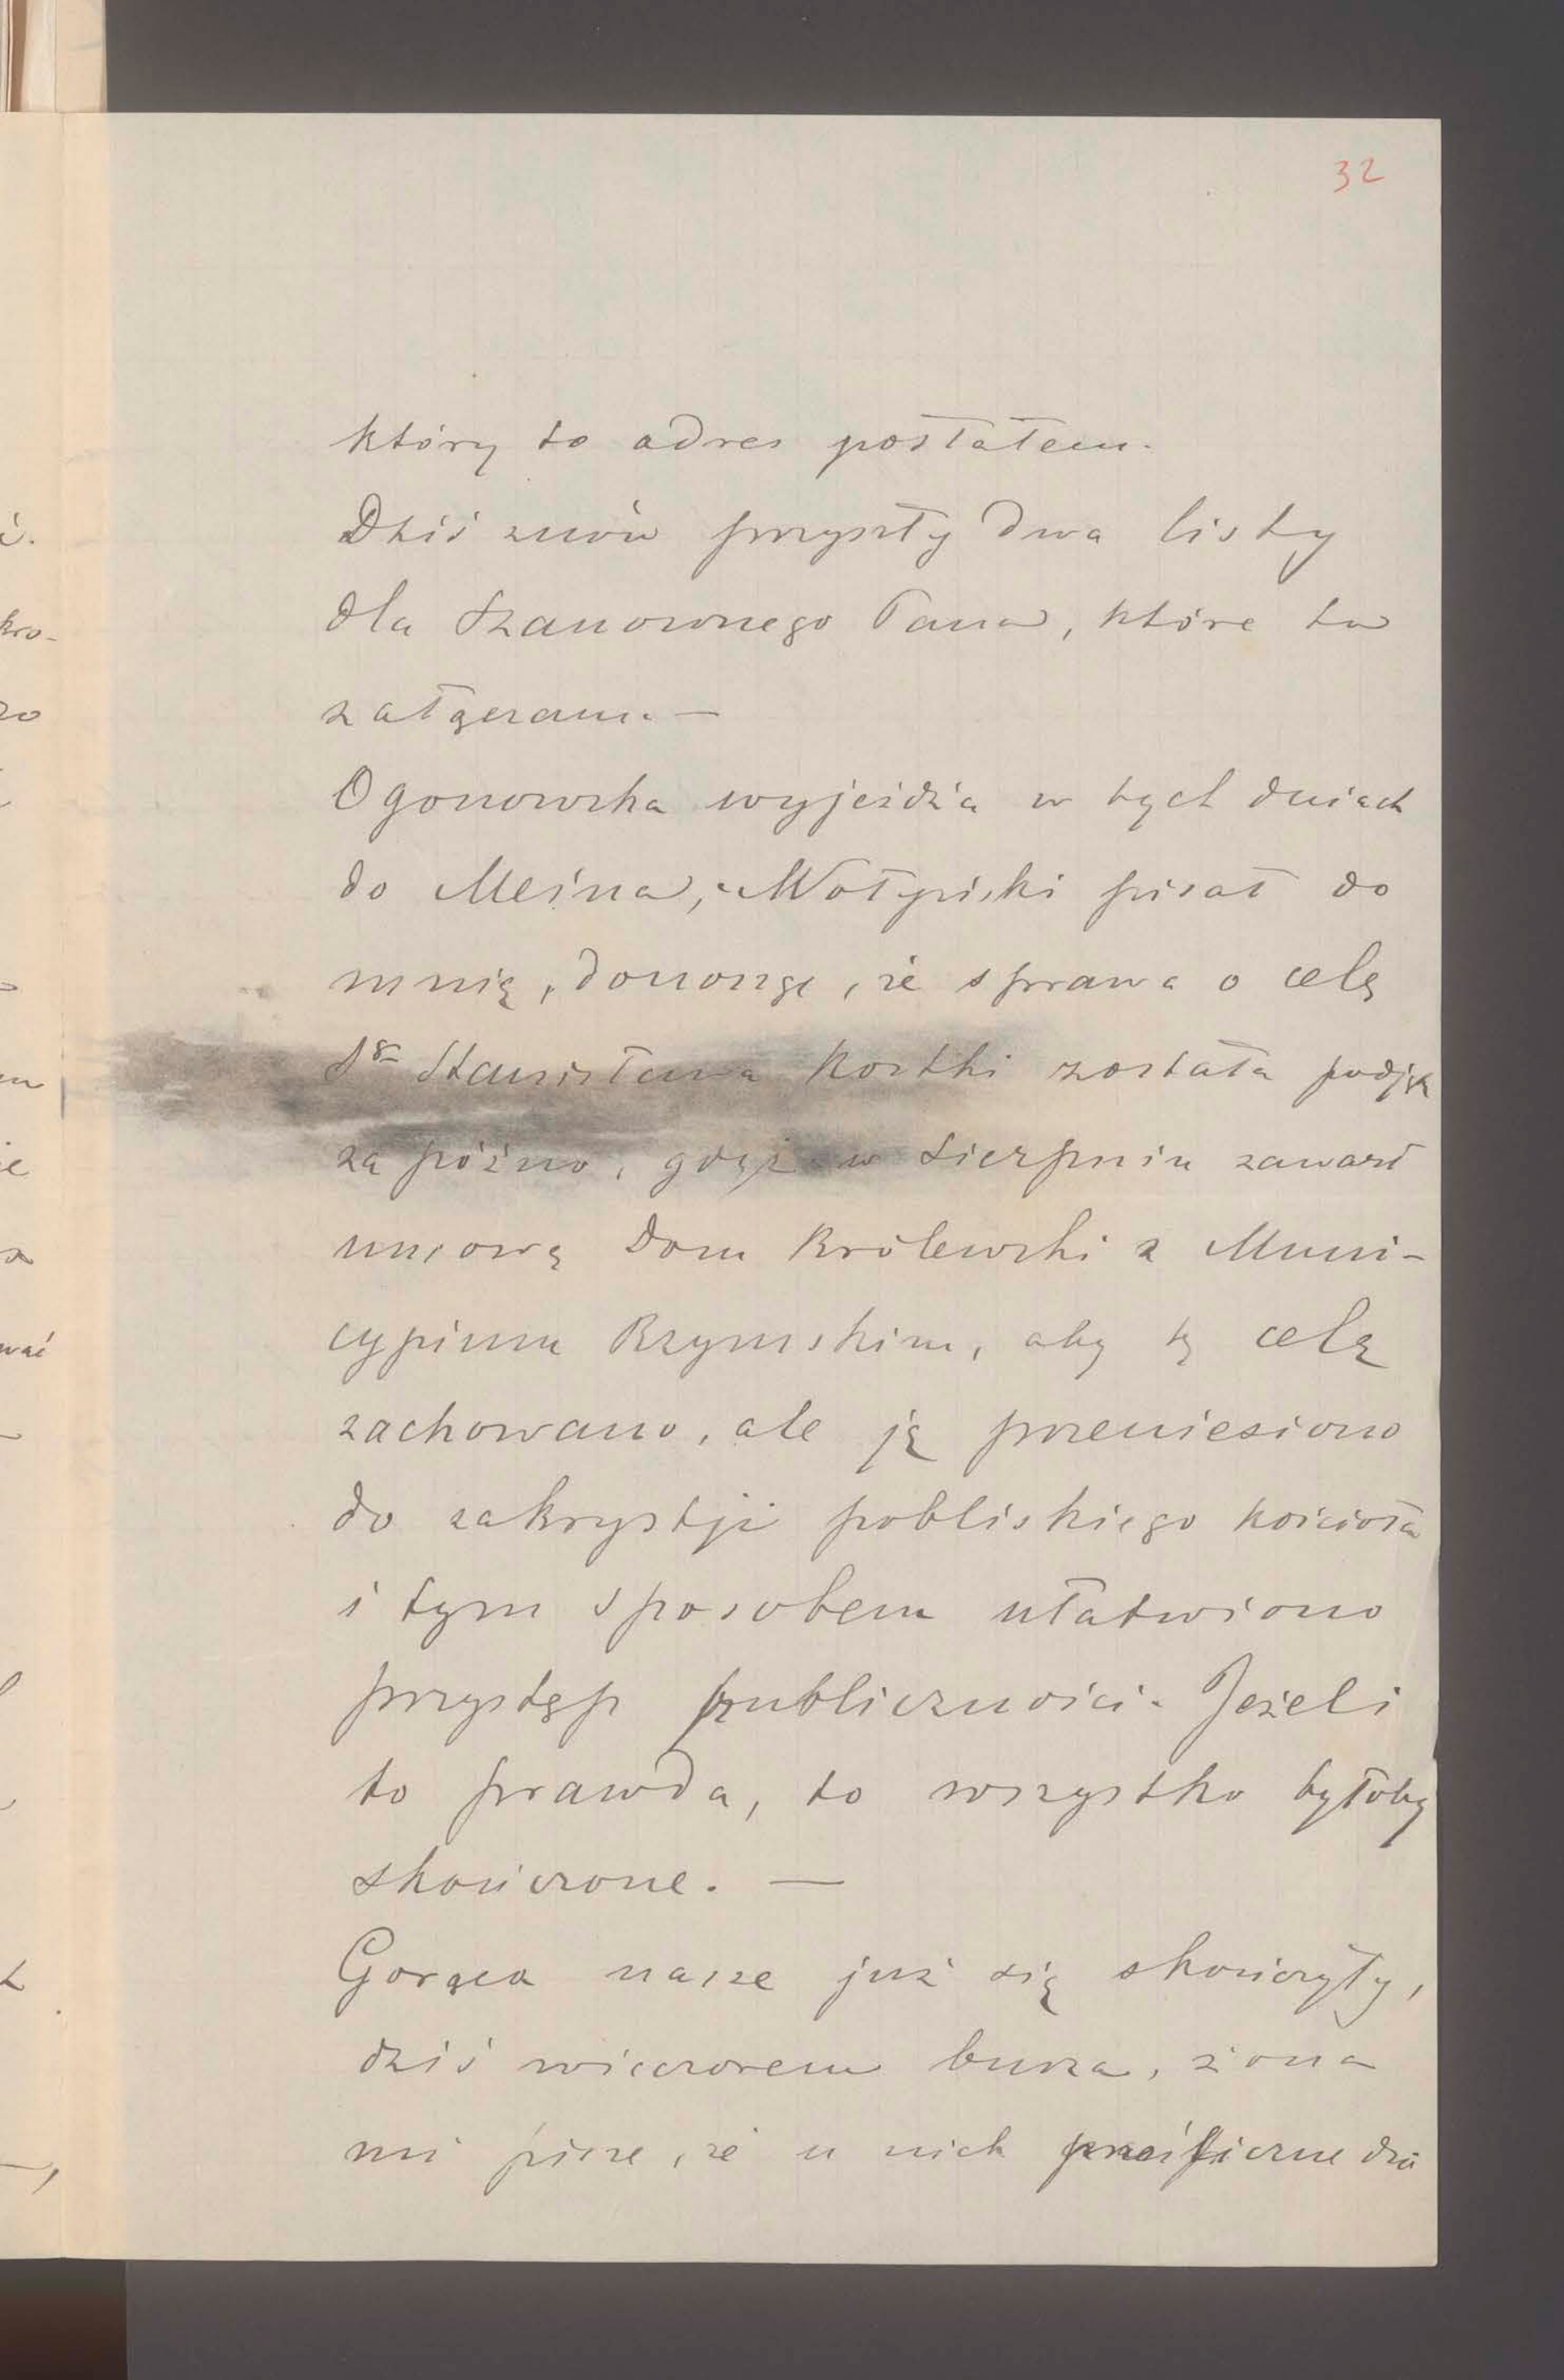 32
który to adres posłałem.
Dziś znów przyszły dwa listy
dla Szanownego Pana, które tu
załączam. —
Ogonowska wyjeżdża w tych dniach
do Meina, Wołyński pisał do
mnię, donosząc, że sprawa o celę
Sgo Stanisława Kostki została podjęta
za późno, gdyż w Sierpniu zawarł
umowę Dom Królewski z Muni-
cypium Rzymskim, aby tę celę
zachowano, ale ją przeniesiono
do zakrystji pobliskiego kościoła
i tym sposobem ułatwiono
przystęp publiczności. Jeżeli
to prawda, to wszystko byłoby
skończone. —
Gorąca nasze już się skończyły,
dziś wieczorem burza, żona
mi pisze, że u nich prześliczne dni